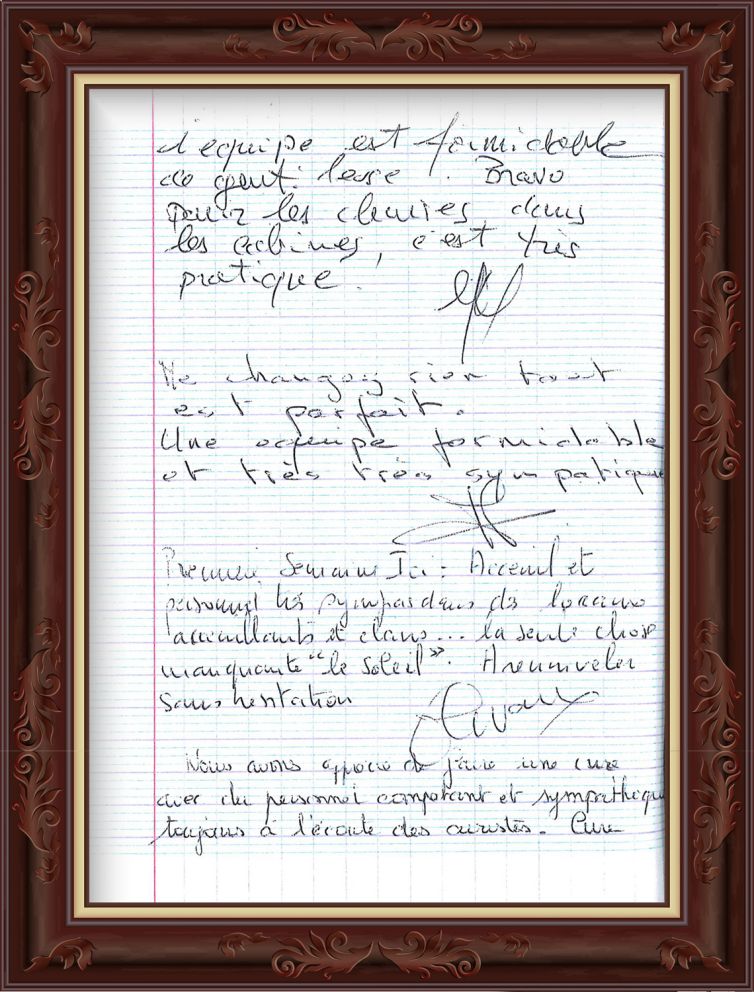 L'equipe est formidable
de gentillesse. Bravo
pour les chaises dans
les cabines, c'est très
pratique.
Ne changez rien tout
est parfait.
Une equipe formidable
et très très sympatique
Premiere Semaine Ici : Acceuil et
personnel très sympas dans des locaux
accueillants et clairs... la seule chose
manquante "le soleil". A renouveler
sans hesitation
Nous avons apprecié de faire une cure
avec du personnel competant et sympathique
toujours à l'écoute des curistes. Cure